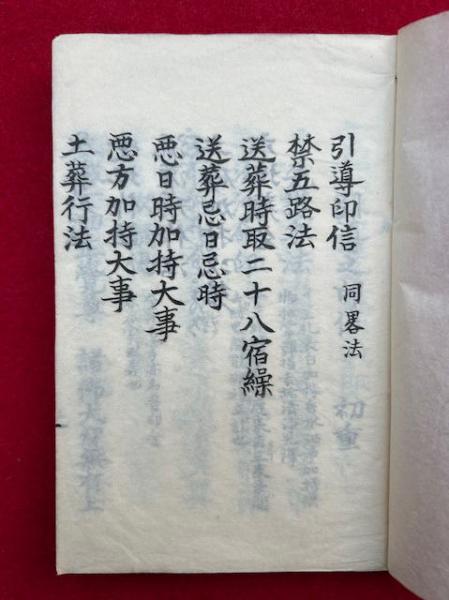 引導印信 同畧法
禁五路法
送葬時取二十八宿繰
送葬忌日忌時
悪日時加持大事
悪方加持大事
土葬行法